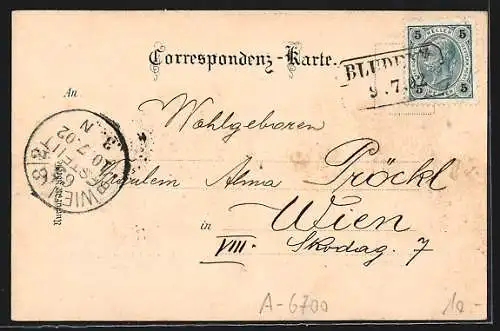 Correspondenz-Karte.
5 HELLER 5
BLUDENZ
9.7.02
An
Wohlgeboren
Fräulein Alma Pröckl
in Wien
VIII. Skodag. 7
WIEN 8
BESTELLT
10.7.02
3. N
A-6700
10-